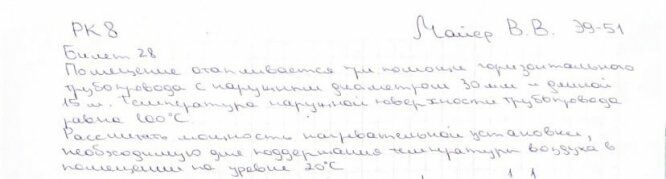 РК 8 Майер В.В. Э9-51
Билет 28
Помещение отапливается при помощи горизонтального
трубопровода с наружным диаметром 30 мм и длиной
15 м. Температура наружной поверхности трубопровода
равна 100°C
Рассчитать мощность нагревательной установки,
необходимую для поддержания температуры воздуха в
помещении на уровне 20°C